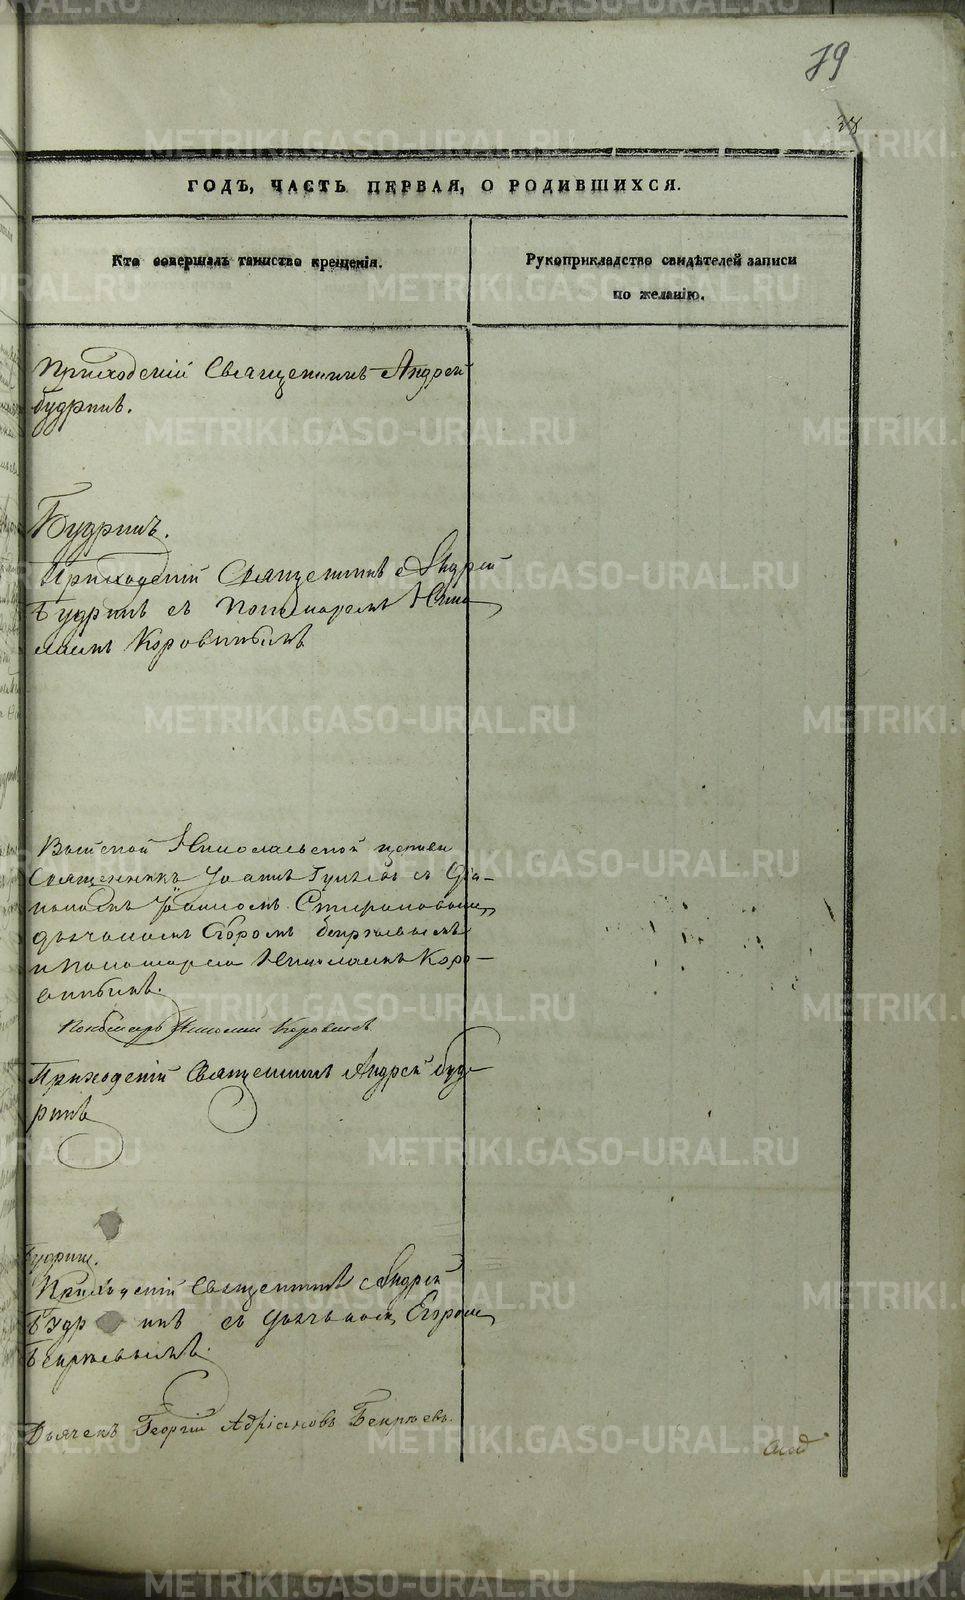 79
ГОДЪ, ЧАСТЬ ПЕРВАЯ, О РОДИВШИХСЯ.
Кто совершалъ таинство крещенія.
Рукоприкладство свидѣтелей записи
по желанію.
Приходскій Священникъ Андрей
Будринъ.
Будринъ.
Приходскій Священникъ Андрей
Будринъ съ Пономаремъ Нико
лаемъ Коровинымъ
Выйской Николаевской церкви
Священникъ Іоаннъ съ Діа-
кономъ Іоанномъ Стефановымъ,
дьячкомъ Егоромъ Бекрѣевымъ
и Пономаремъ Николаемъ Коро-
винымъ.
Пономарь Николай Коровинъ
Приходскій Священникъ Андрей Буд-
ринъ
Будрин.
Приходскій Священникъ Андрей
Будринъ съ дьячкомъ Егоромъ
Бекрѣевымъ.
Дьячекъ Георгій Адріановъ Бекрѣевъ.
METRIKI.GASO-URAL.RU